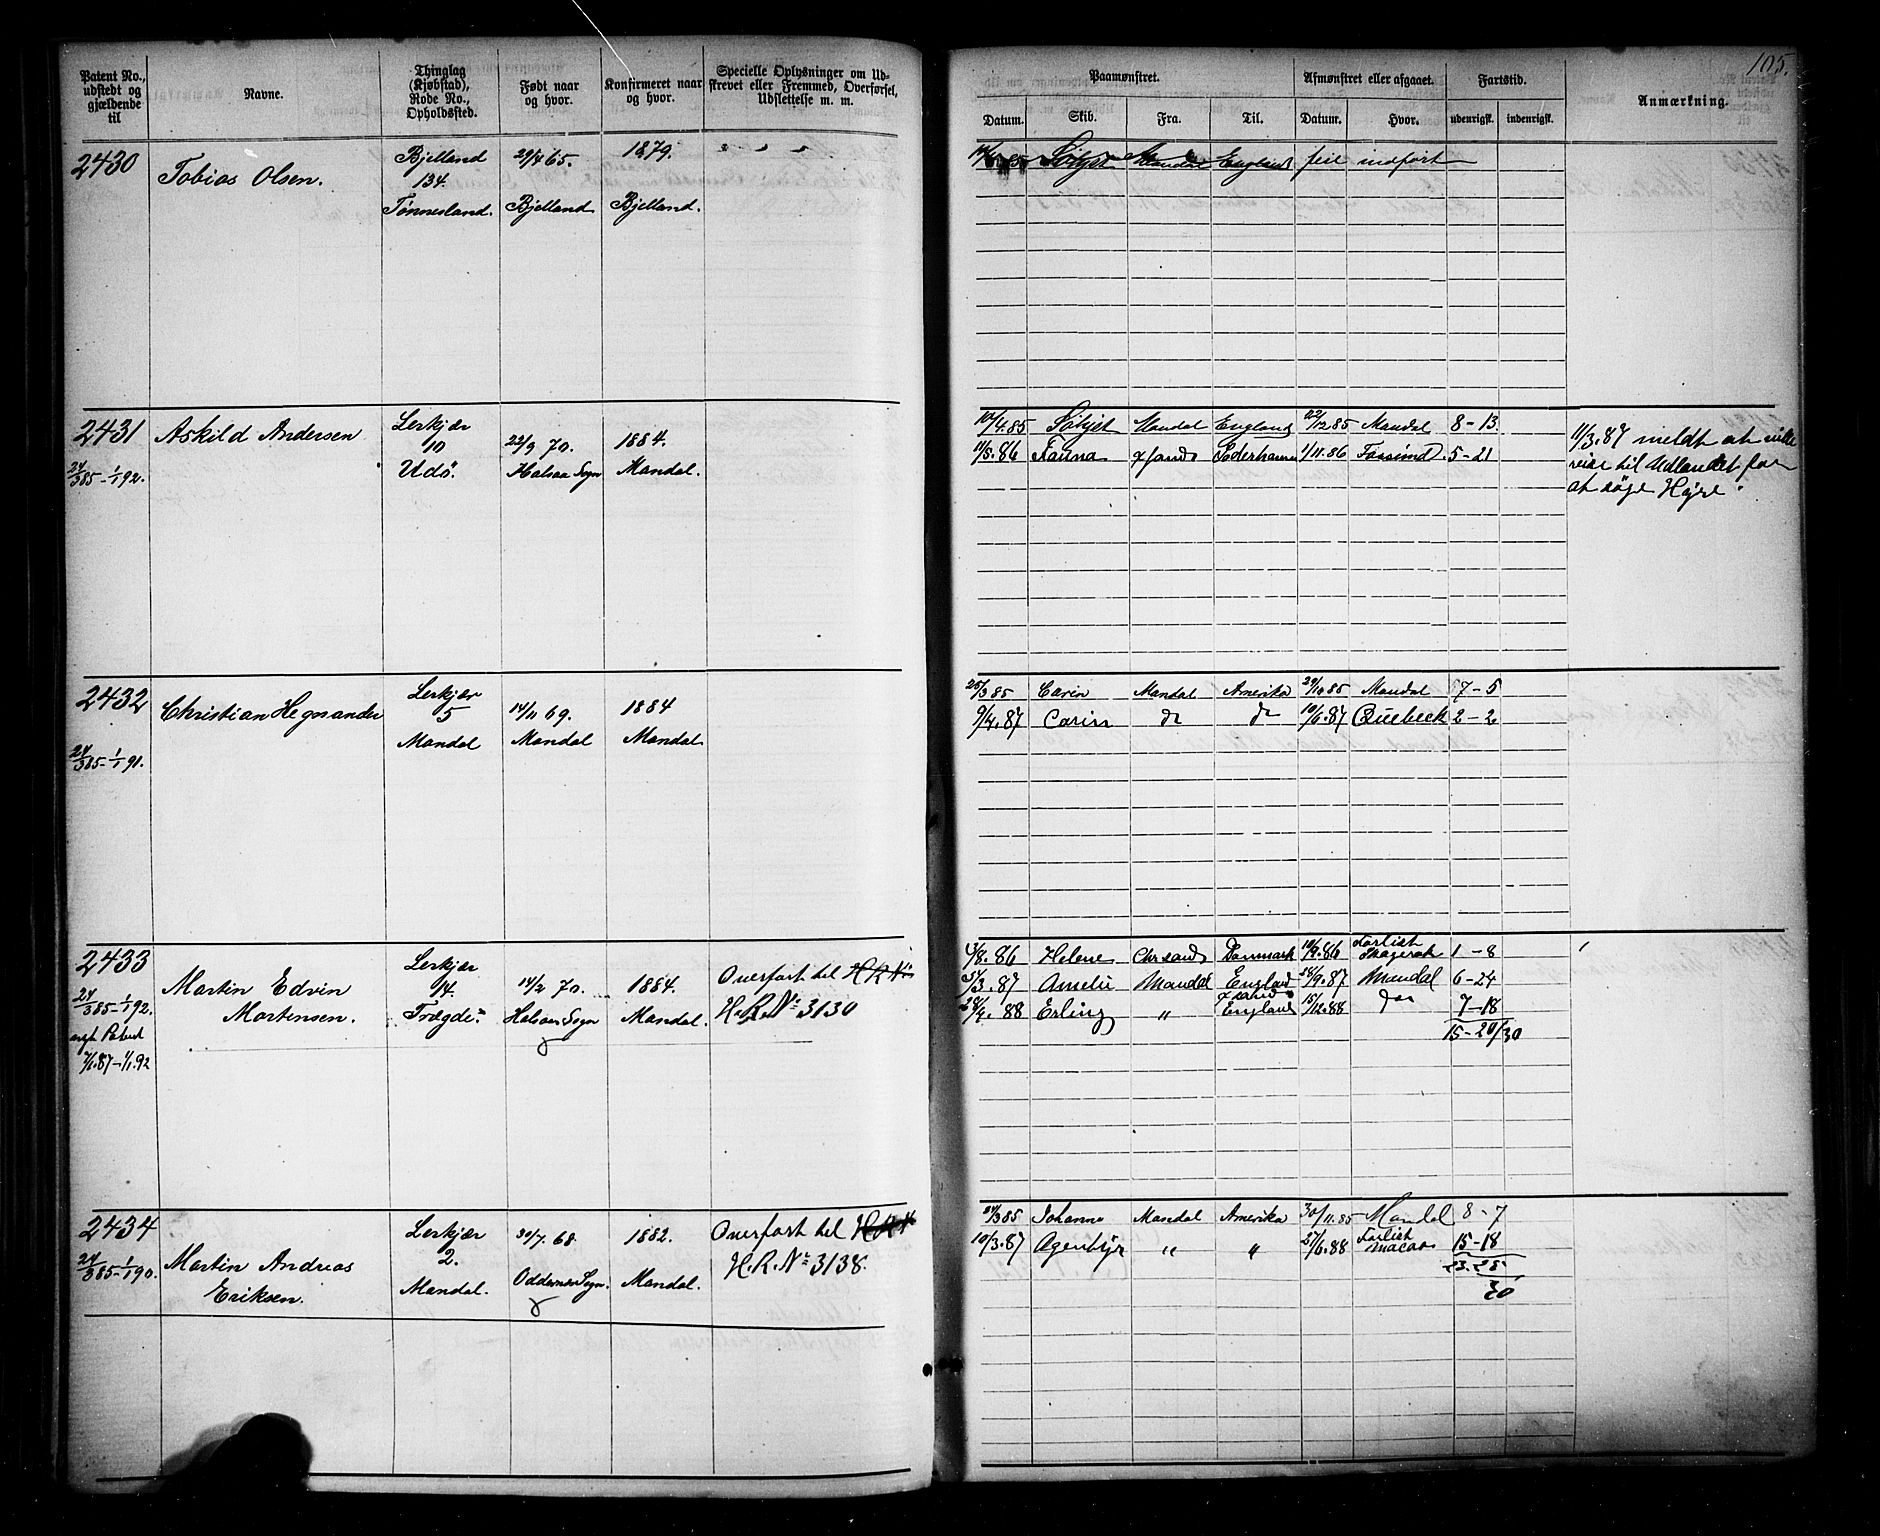 105.
Patent No., udstedt og gjældende til
Navne.
Thinglag (Kjøbstad), Rode No., Opholdssted.
Født naar og hvor.
Konfirmeret naar og hvor.
Specielle Oplysninger om Udskrevet eller Fremmed, Overførsel, Udslettelse m. m.
Paamønstret.
Afmønstret eller afgaaet.
Fartstid.
Anmærkning.
Datum. Skib. Fra. Til. Datum. Hvor. udenrigsk. indenrigsk.
2430
Tobias Olsen.
Bjelland
134.
Tønnesland.
29/4 65.
Bjelland
1879.
Bjelland.
" " "
Mandal England feil indført
2431
24/3 85 - 1/1 92.
Askild Andersen
Lerkjær
10
Udö.
22/9 70.
Halsaa Sogn
1884.
Mandal.
10/4.85 Mandal England 22/12 85 Mandal 8-13
11/5.86 Fauna Xsand Söderhamn 1/11.86 5-21
11/3.87 meldt at ville
reise til Udlandet for
at söge Hyre.
2432
24/3 85 - 1/1 91.
Christian Hegnsander
Lerkjær
5
Mandal
14/11 69.
Mandal
1884
Mandal
25/3 85 Carin Mandal Amerika 29/10 85 Mandal 7-5
9/4.87 Carin do do 10/6.87 Quebeck 2-2
2433
24/3 85 - 1/1 92.
nyt Patent
7/1.87 - 1/1.92
Martin Edvin
Mortensen.
Lerkjær
14.
Trægde
14/2 70.
Halsaa Sogn
1884.
Mandal.
Overført til H.R.N:
H.R.N: 3130
13/8.86 Helene Chrsand Danmark 10/9.86 Forlist Skagerak 1-8
/3.87 Amelie Mandal England /9.87 Mandal 6-24
28/4.88 Erling " Xsand England 15/12.88 do 7-18
15-20/30
2434
24/3 85 - 1/1 90.
Martin Andreas
Eriksen.
Lerkjær
2.
Mandal.
30/7. 68.
Oddernes Sogn.
1882.
Mandal.
Overført til H.R.N
H.R.N: 3138.
24/3 85 Johanne Mandal Amerika 30/11.85 Mandal 8-7
10/3.87 " " 27/6.88 Forlist Macao 15-18
23.25
30